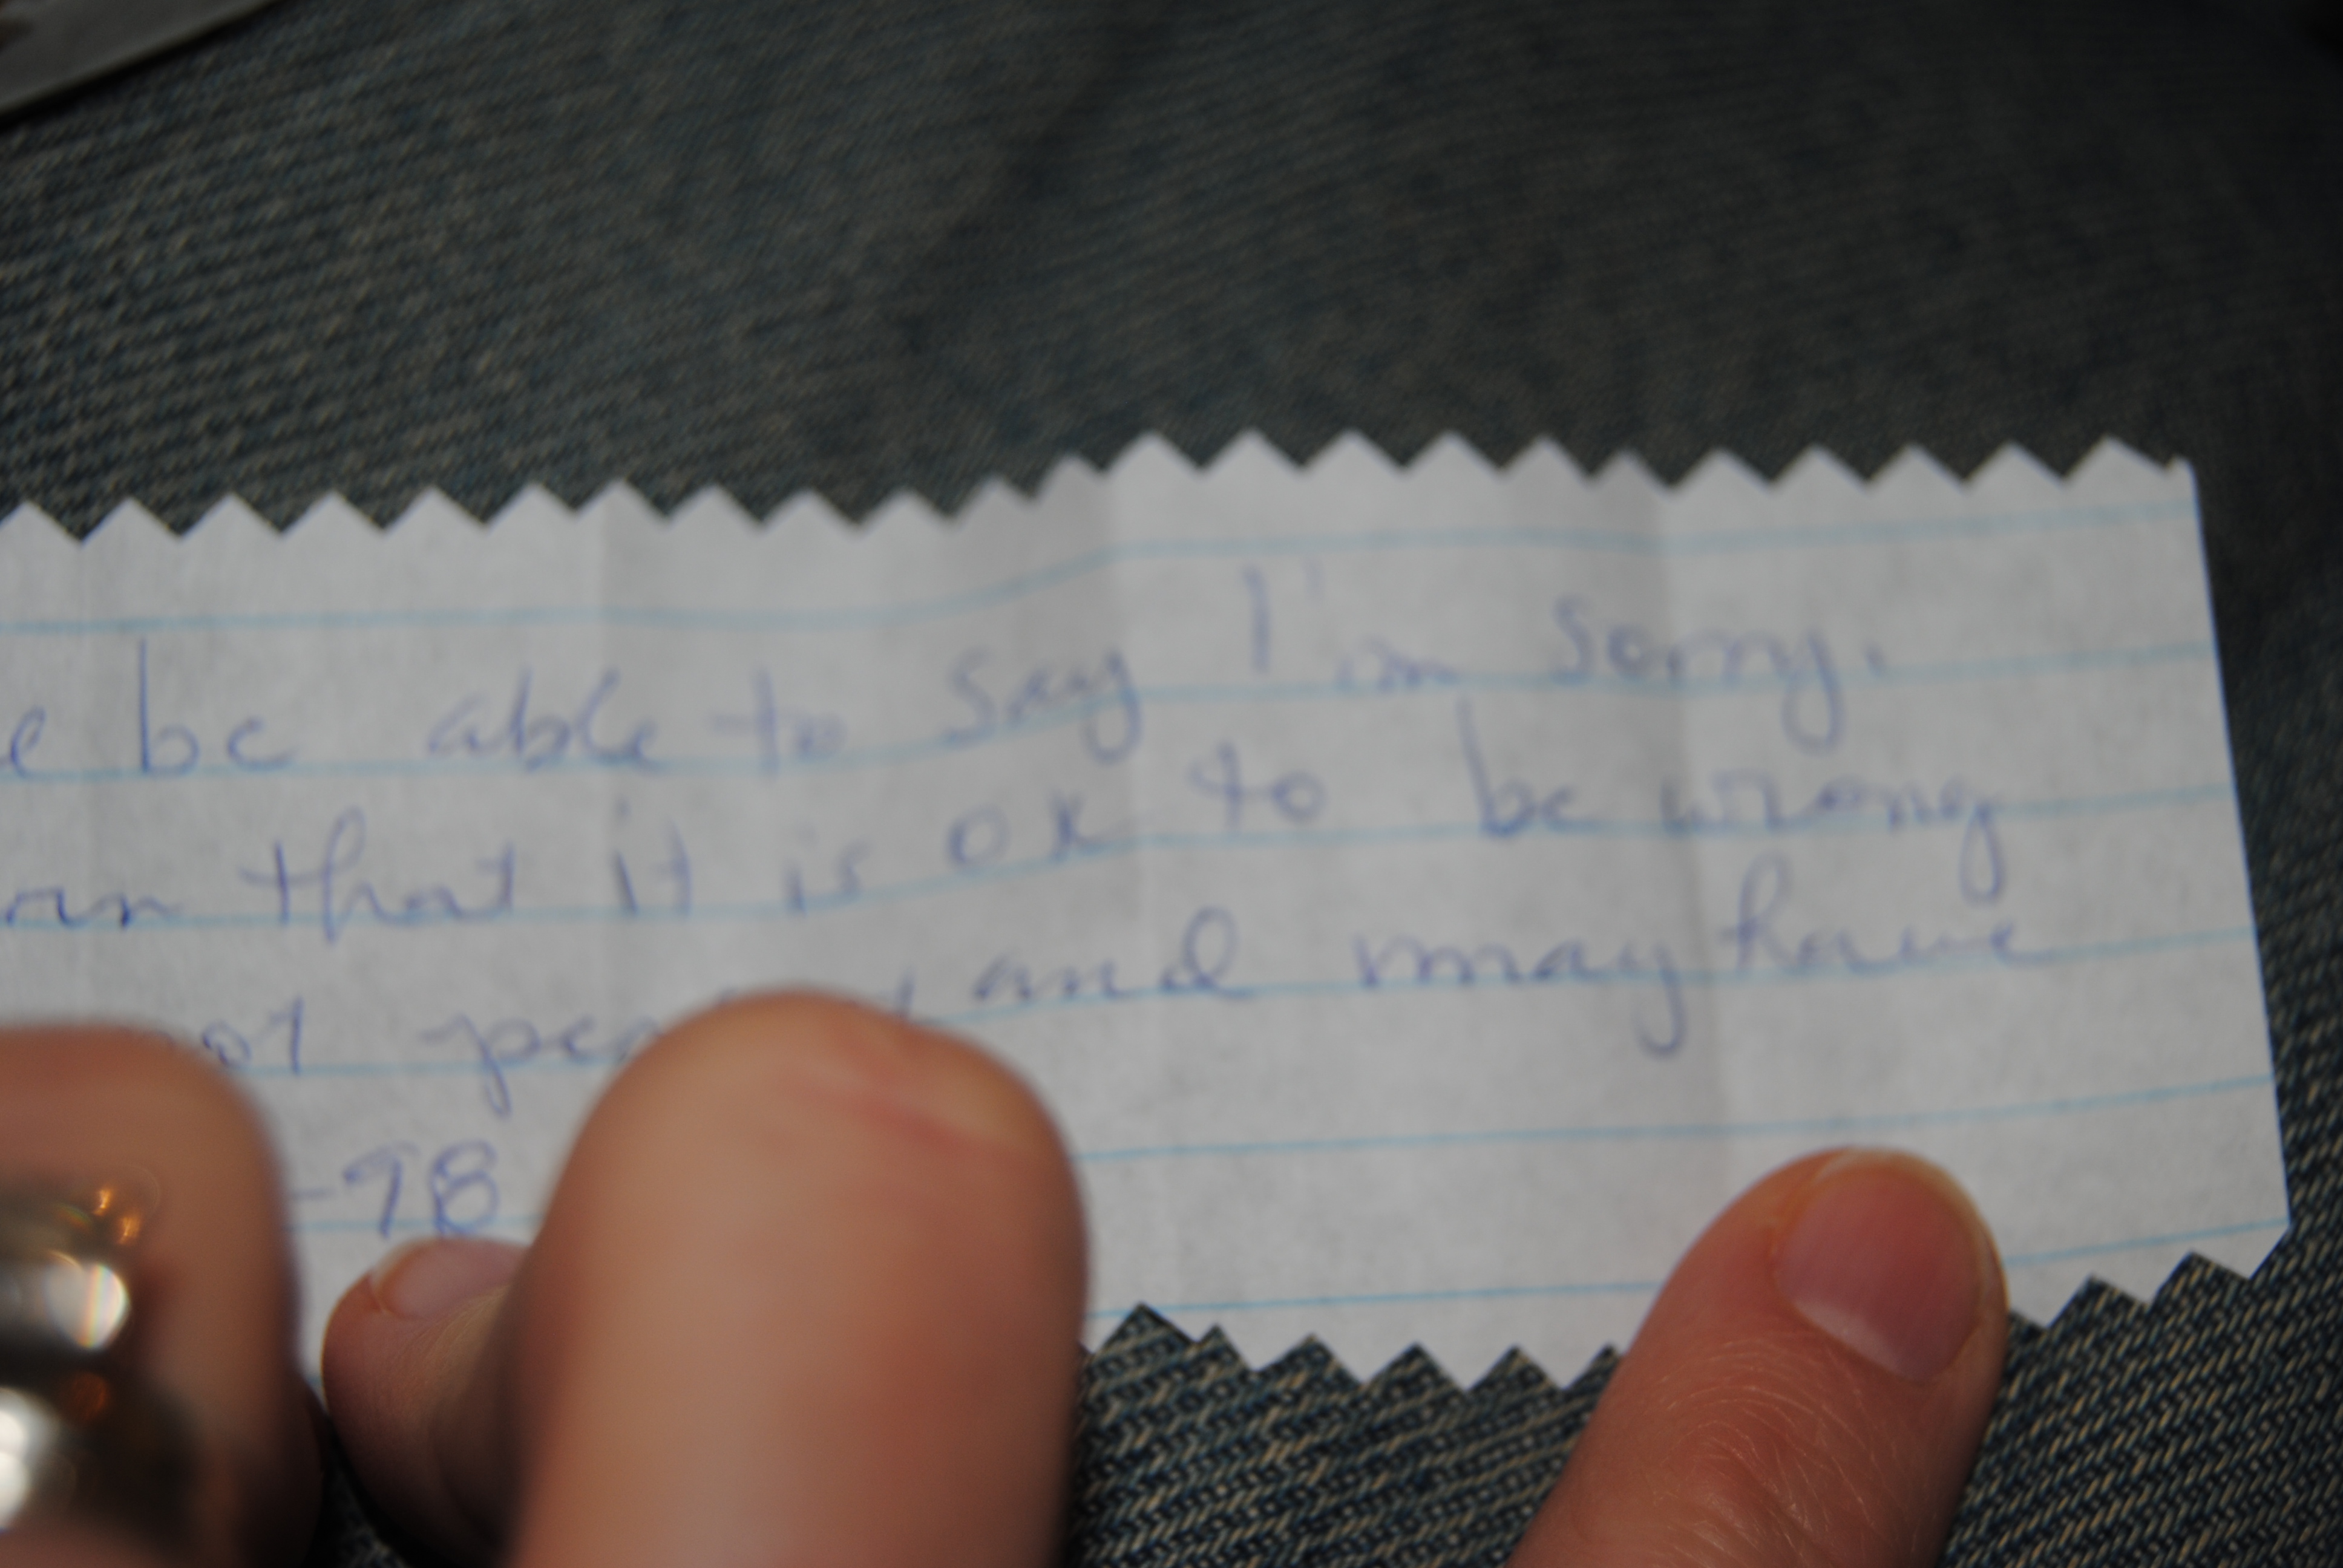 be able to say I'm sorry.
that it is ok to be wrong
and may have
-98